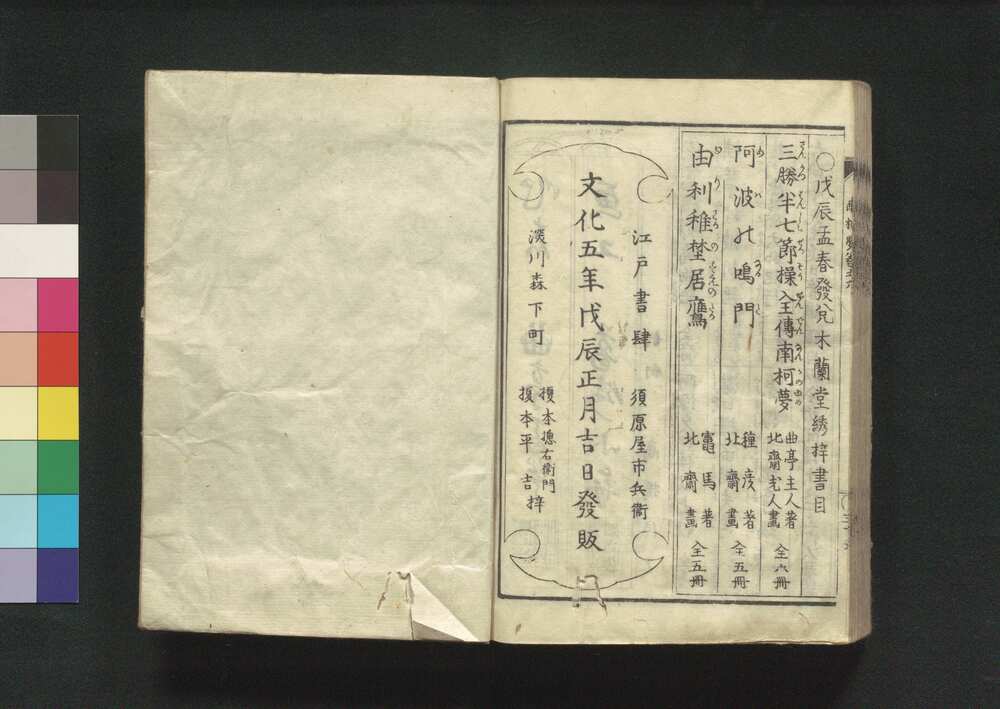 ○戊辰孟春發兌木蘭堂綉梓書目
三勝半七節操全傳南柯夢
曲亭主人著
北齋老人畫
全六冊
阿波の鳴門
種彦著
北齋畫
全五冊
由利稚埜居鷹
竃馬著
北齋畫
全五冊
江戸書肆 須原屋市兵衞
文化五年戊辰正月吉日發販
深川森下町
榎本惣右衞門
榎本平吉梓